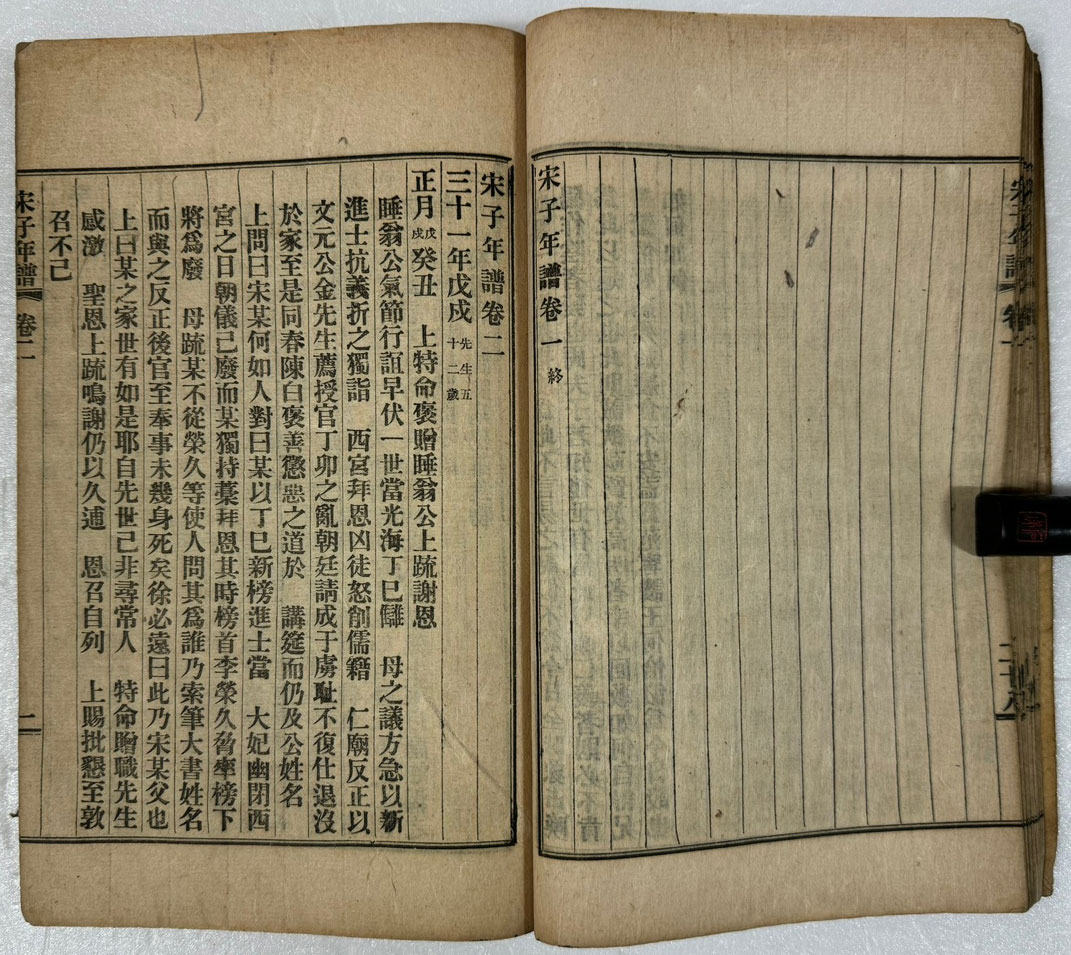 宋子年譜卷一 終
宋子年譜卷二
三十一年戊戌 先生五十二歲
正月 戊戌 癸丑 上特命褒贈睡翁公上疏謝恩
睡翁公氣節行誼早伏一世當光海丁巳讎 母之議方急以新
進士抗義折之獨詣 西宮拜恩凶徒怒削儒籍 仁廟反正以
文元公金先生薦授官丁卯之亂朝廷請成于虜恥不復仕退沒
於家至是同春陳白褒善懲惡之道於 講筵而仍及公姓名
上問曰宋某何如人對曰某以丁巳新榜進士當 大妃幽閉西
宮之日朝儀已廢而某獨持藁拜恩其時榜首李榮久脅率榜下
將爲廢 母疏某不從榮久等使人問其爲誰乃索筆大書姓名
而與之反正後官至奉事未幾身死矣徐必遠曰此乃宋某父也
上曰某之家世有如是耶自先世已非尋常人 特命贈職先生
感激 聖恩上疏鳴謝仍以久逋 恩召自列 上賜批懇至敦
召不已
宋子年譜 卷二
二